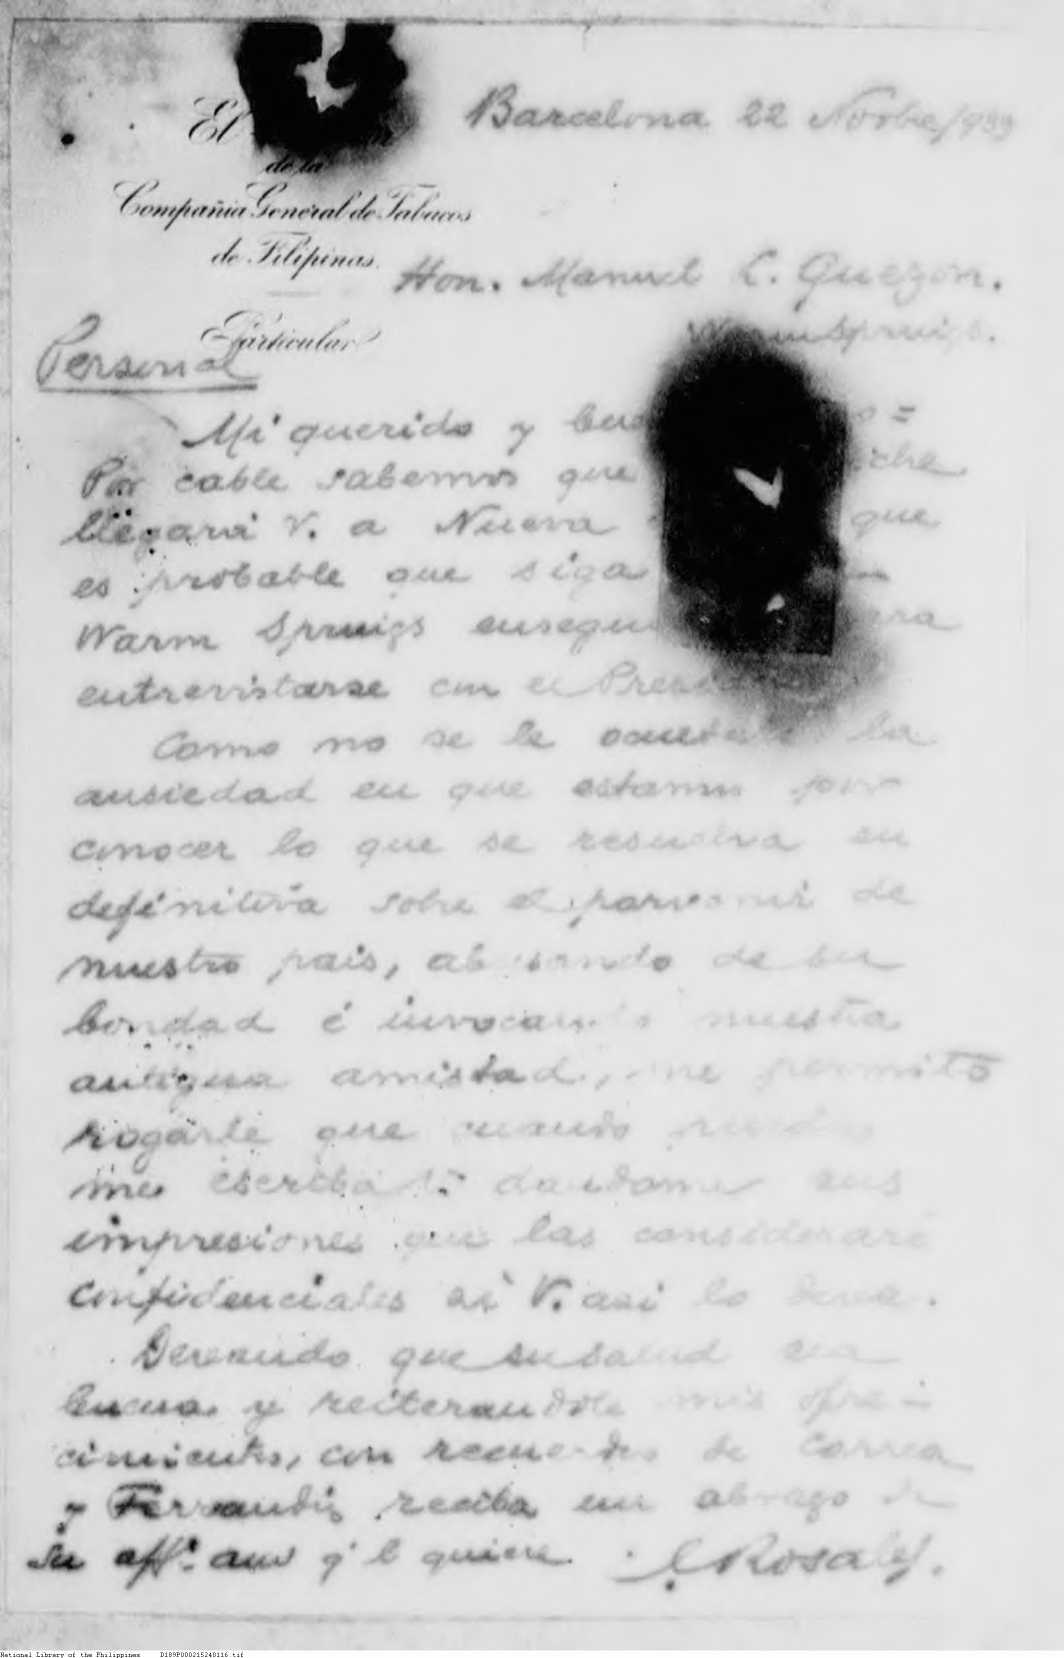 El
de la
Compañia General de Tabacos
de Filipinas.
Particular
Barcelona 22 Novbre/933
Hon. Manuel L. Quezon.
Warm Springs.
Personal
Mi querido y
Por cable sabemos que
llegará V. a Nueva que
es probable que siga
Warm Springs enseguida para
entrevistarse con el
Como no se le ocultará la
ansiedad en que estamos por
conocer lo que se resuelva en
definitiva sobre el porvenir de
nuestro pais, abusando de su
bondad é invocando nuestra
antigua amistad, me permito
rogarle que cuando pueda
me escriba dandome sus
impresiones que las consideraré
confidenciales si V. asi lo desea.
Deseando que su salud sea
buena y reiterandole mis ofre-
cimientos, con recuerdos de Correa
y Ferrandiz reciba un abrazo de
su affº. amº q' le quiere. Rosales.
National Library of the Philippines D189P000215240116.tif